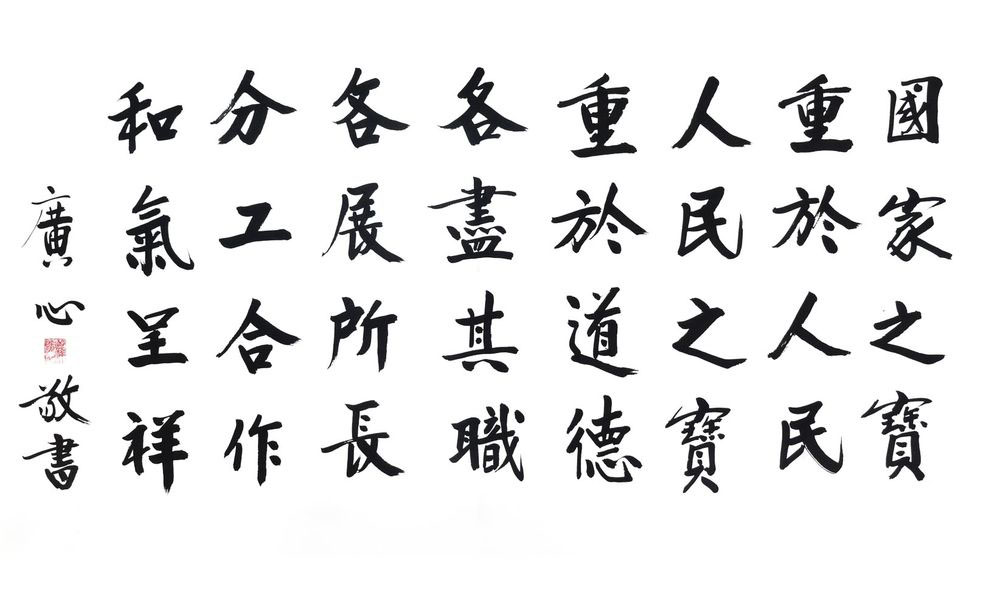 國家之寶
重於人民
人民之寶
重於道德
各盡其職
各展所長
分工合作
和氣呈祥
廣心敬書